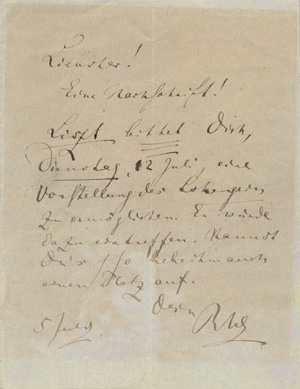 Liebster!
Eine Nachschrift!
Liszt bittet Dich,
Dienstag, 12 Juli, eine
Vorstellung des Lohengrin
zu ermöglichen. Er würde
dazu eintreffen. Kannst
Du's
einen Platz auf.
Dein
5 Juli